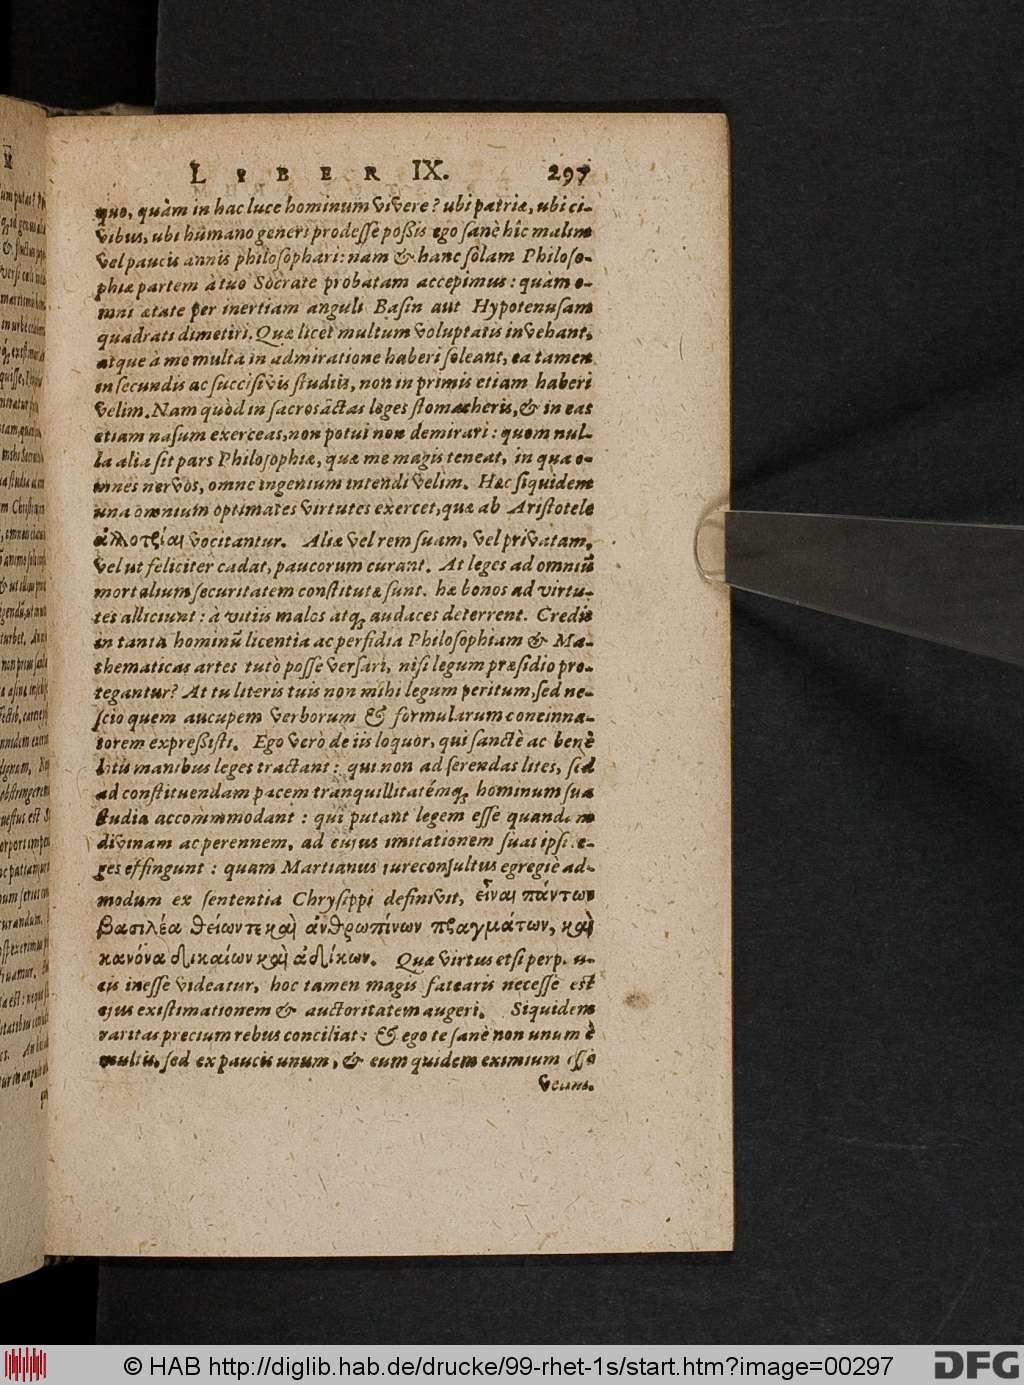 LIBER IX. 297
quo, quàm in hac luce hominum vivere? ubi patriæ, ubi ci-
vibus, ubi humano generi prodesse possis ego sanè hîc malim
vel paucis annis philosophari: nam & hanc solam Philoso-
phiæ partem à tuo Socrate probatam accepimus: quàm o-
mni ætate per inertiam anguli Basin aut Hypotenusam
quadrati dimetiri. Quæ licet multum voluptatis invehant,
atque à me multa in admiratione haberi soleant, ea tamen
in secundis ac succisivis studiis, non in primis etiam haberi
velim. Nam quòd in sacrosāctas leges stomacheris, & in eas
etiam nasum exerceas, non potui non demirari: quom nul-
la alia sit pars Philosophiæ, quæ me magis teneat, in qua o-
mnes nervos, omne ingenium intendi velim. Hæc siquidem
una omnium optimates virtutes exercet, quæ ab Aristotele
ἀλλοτρίαι vocitantur. Aliæ vel rem suam, vel privatam,
vel ut feliciter cadat, paucorum curant. At leges ad omniū
mortalium securitatem constitutæ sunt. hæ bonos ad virtu-
tes alliciunt: à vitiis malos atq; audaces deterrent. Credis
in tanta hominū licentia ac perfidia Philosophiam & Ma-
thematicas artes tutò posse versari, nisi legum præsidio pro-
tegantur? At tu literis tuis non mihi legum peritum, sed ne-
scio quem aucupem verborum & formularum concinna-
torem expressisti. Ego verò de iis loquor, qui sanctè ac benè
litis manibus leges tractant: qui non ad serendas lites, sed
ad constituendam pacem tranquillitatémq; hominum sua
studia accommodant: qui putant legem esse quandam
divinam ac perennem, ad cujus imitationem suas ipsi le-
ges effingunt: quam Martianus jureconsultus egregiè ad-
modum ex sententia Chrysippi definivit, εἶναι πάντων
βασιλέα θείων τε καὶ ἀνθρωπίνων πραγμάτων, καὶ
κανόνα δικαίων καὶ ἀδίκων. Quæ virtus etsi perpau-
cis inesse videatur, hoc tamen magis fatearis necesse est
ejus existimationem & auctoritatem augeri. Siquidem
raritas precium rebus conciliat: & ego te sanè non unum è
multis, sed ex paucis unum, & eum quidem eximium esse
velim.
© HAB http://diglib.hab.de/drucke/99-rhet-1s/start.htm?image=00297
DFG